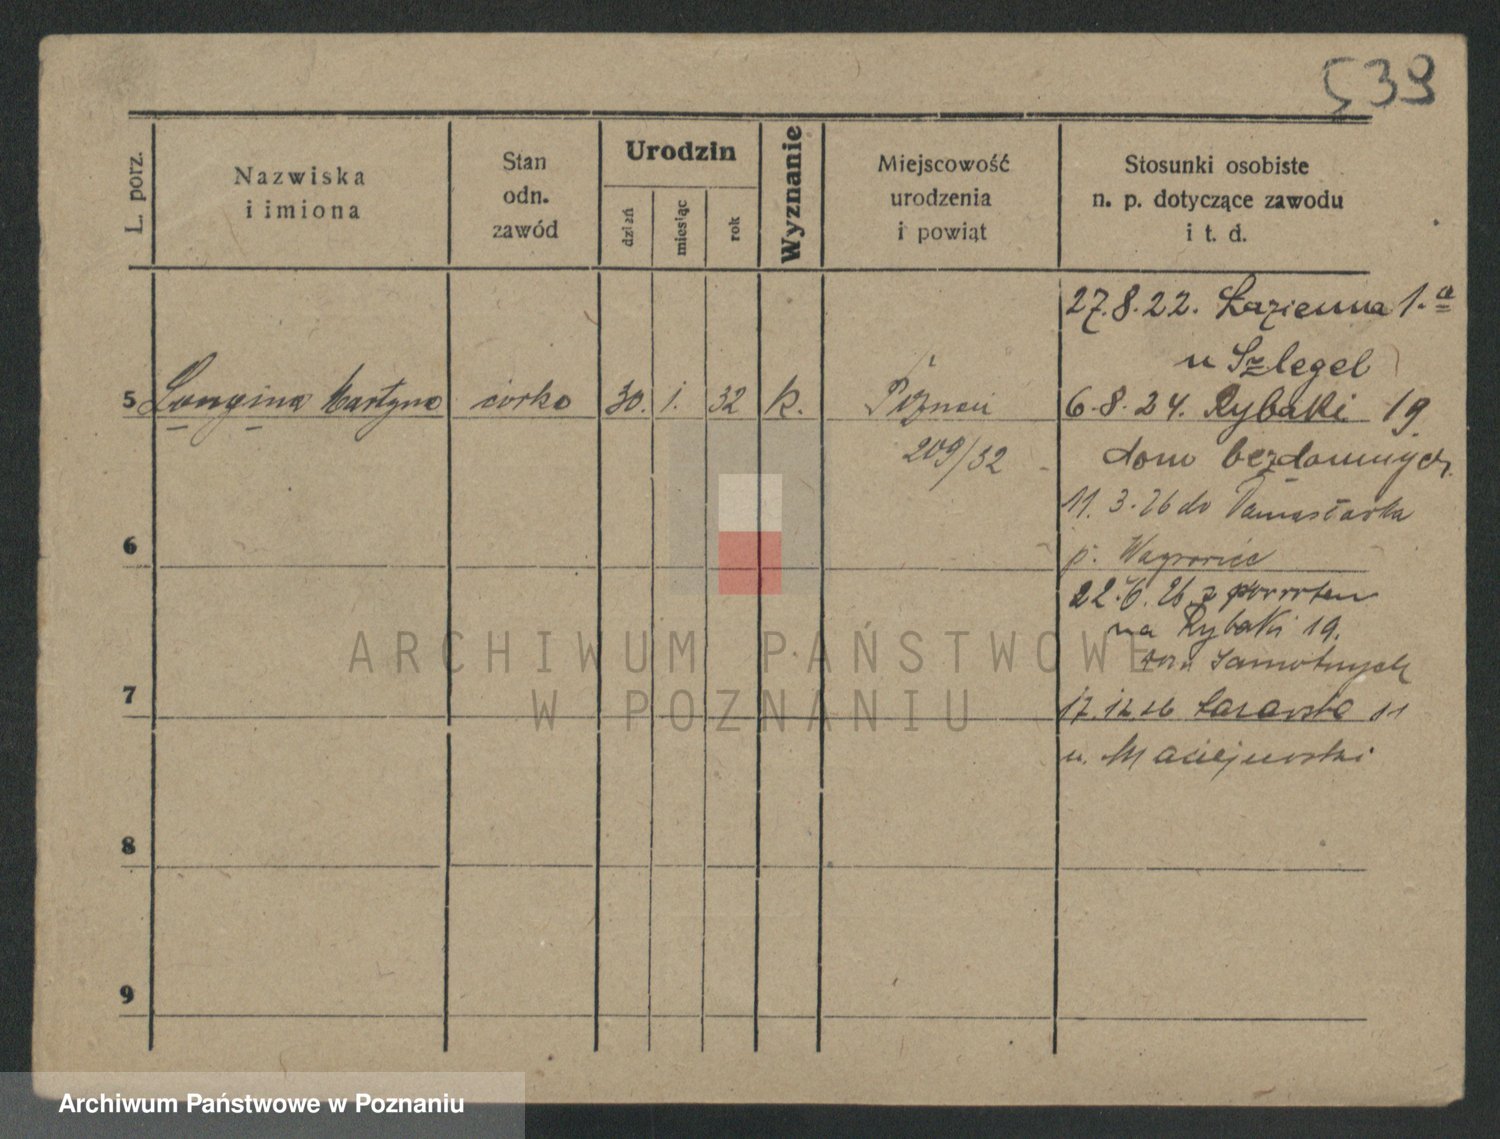 539
L. porz.
Nazwiska
i imiona
Stan
odn.
zawód
Urodzin
dzień
miesiąc
rok
Wyznanie
Miejscowość
urodzenia
i powiąt
Stosunki osobiste
n. p. dotyczące zawodu
i t. d.
27.8.22. Łazienna 1.a
u Szlegel
5 Longina Martyna córka 30. 1. 32 k. Poznań 6.8.24. Rybaki 19
209/32 dom bezdomnych
11.3.26 do Damasławka
6
p. Wągrowiec
22.6.26 z powrotem
na Rybaki 19.
Samotnych
7
17.12.26 11
u. Maciejewski
8
9
ARCHIWUM PAŃSTWOWE
W POZNANIU
Archiwum Państwowe w Poznaniu